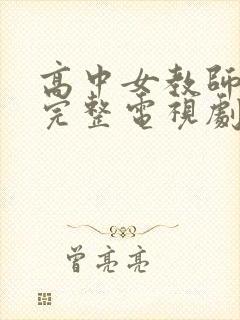 高中女教師
完整電視劇
曾亮亮